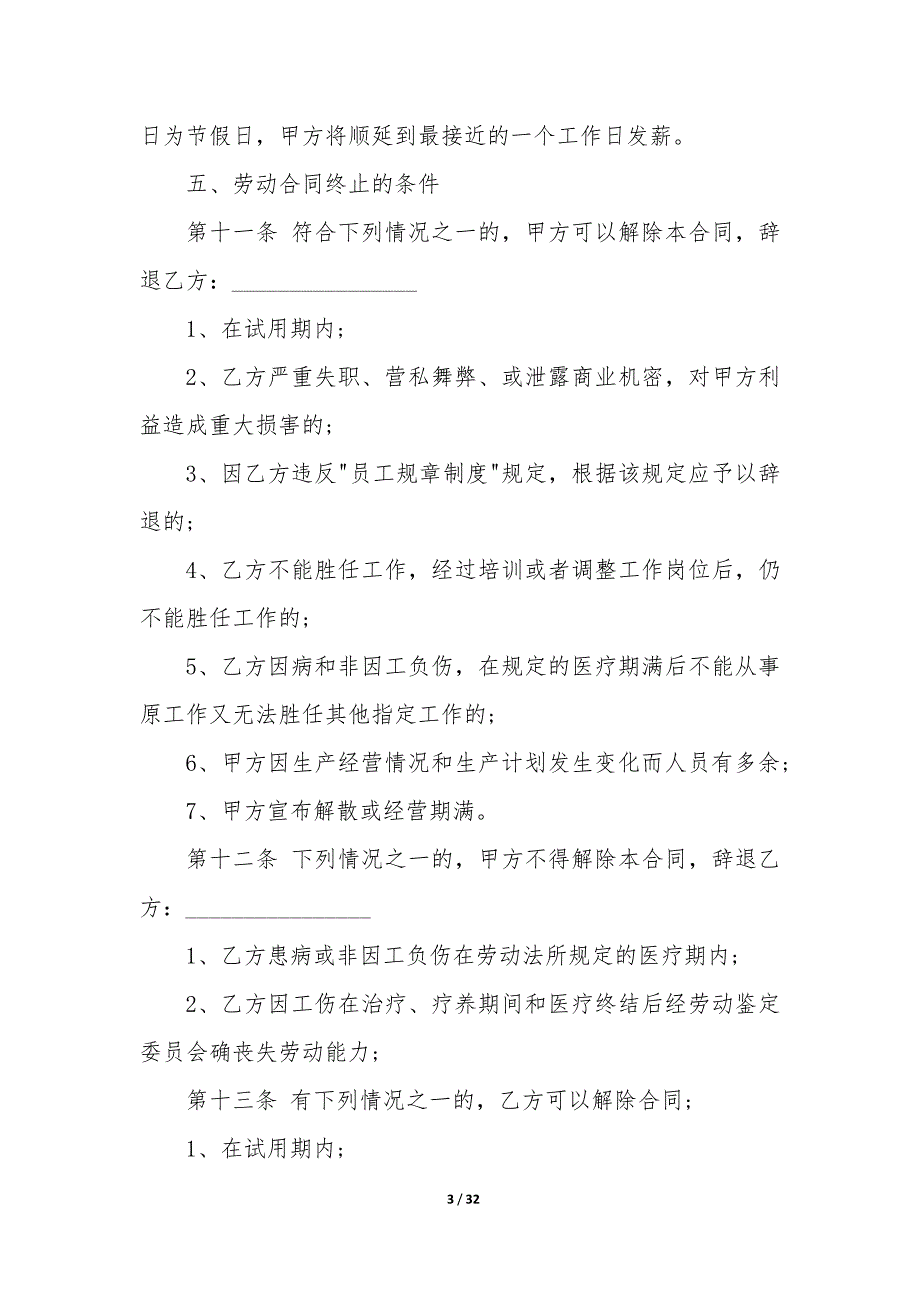 日为节假日，甲方将顺延到最接近的一个工作日发薪。
五、劳动合同终止的条件
第十一条 符合下列情况之一的，甲方可以解除本合同，辞
退乙方：________________
1、在试用期内;
2、乙方严重失职、营私舞弊、或泄露商业机密，对甲方利
益造成重大损害的;
3、因乙方违反"员工规章制度"规定，根据该规定应予以辞
退的;
4、乙方不能胜任工作，经过培训或者调整工作岗位后，仍
不能胜任工作的;
5、乙方因病和非因工负伤，在规定的医疗期满后不能从事
原工作又无法胜任其他指定工作的;
6、甲方因生产经营情况和生产计划发生变化而人员有多余;
7、甲方宣布解散或经营期满。
第十二条 下列情况之一的，甲方不得解除本合同，辞退乙
方：________________
1、乙方患病或非因工负伤在劳动法所规定的医疗期内;
2、乙方因工伤在治疗、疗养期间和医疗终结后经劳动鉴定
委员会确丧失劳动能力;
第十三条 有下列情况之一的，乙方可以解除合同;
1、在试用期内;
3 / 32